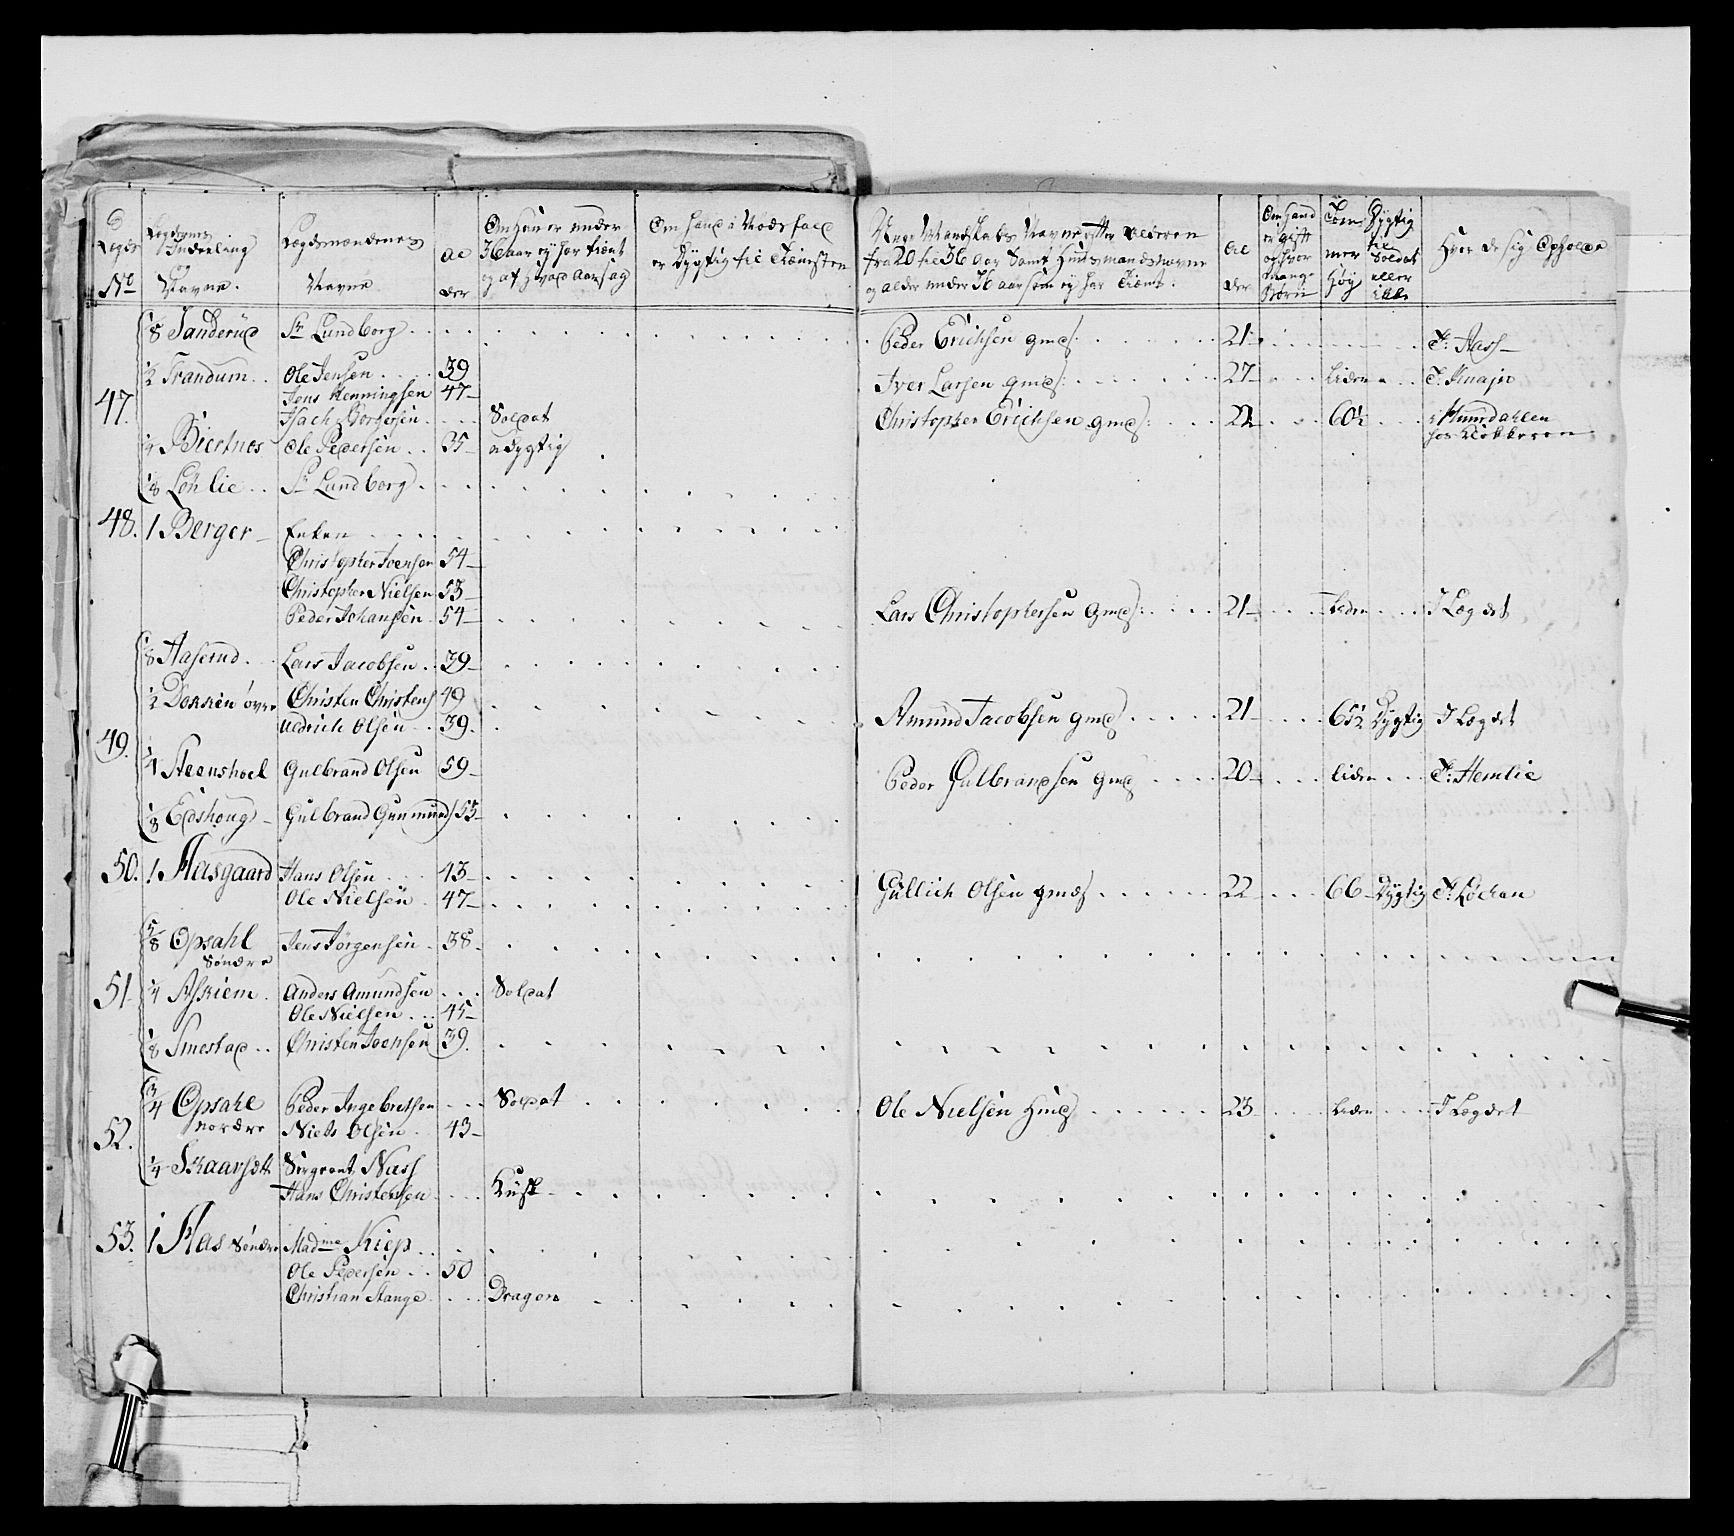 Legds No
Legdsens Inderling Navne.
Legdsmændenes Navne
Al der
Om han er under 36 aar ey har tient og af hvad aarsag
Om hand i Nødsfald er Dygtig til Tienesten
Unge Mandskabs Navne efter alderen fra 20 til 36 aar Samt Huusmands Navne og alder under 36 aar som ey har Tient.
Al der
Om hand er gift og hvor mange Børn
Tommer høy
Dygtig til Soldat eller ikke
Hvor de sig Opholde
1/8 Sanderud Sr Lundborg Peder Erichsen gmd: 21 I: Aass
47. 1/2 Trandum Ole Jensen 39 Iver Larsen gmd: 27 liden
Jens Henningsen 47
Isach Borgersen Soldat Christopher Erichsen gmd: 22 60 1/2
1/4 Biertnes Ole Pedersen 35 udygtig
1/8 Lønlie Sr Lundborg
48. 1 Berger Enken
Christopher Joensen 54
Christopher Nielsen 53
Peder Johansen 54 Lars Christophersen gmd: 21 liden I Legdet
1/8 Aaserud Lars Jacobsen 39
49. 1/2 Dokken øvre Christen Christens 49 Amund Jacobsen gmd 21 65 1/2 Dygtig I Legdet
Uldrich Olsen 39
1/4 Steenshoel Gulbrand Olsen 59 Peder Gulbrandsen gmd 20 liden I: Hemlie
1/8 Edshoug Gulbrand Gunmund 55
50. 1 Aasgaard Hans Olsen 43
Ole Nielsen 47 Gullich Olsen gmd 22 66 Dygtig I: Løcken
5/8 Opsahl Søndre Jens Jørgensen 38
51 1/4 Askiem Anders Amundsen Soldat
Ole Nielsen 45
1/8 Smestad Christen Joensen 39
52. 3/4 Opsahl nordre Peder Ingebretsen Soldat Ole Nielsen Hmd 23 liden I Legdet
Niels Olsen 43
1/4 Skaarsett Sergeant Næss
Hans Christensen Kusk
53. 1 Aas Søndre Madme Kiep
Ole Pedersen 50
Christian Stange Dragon